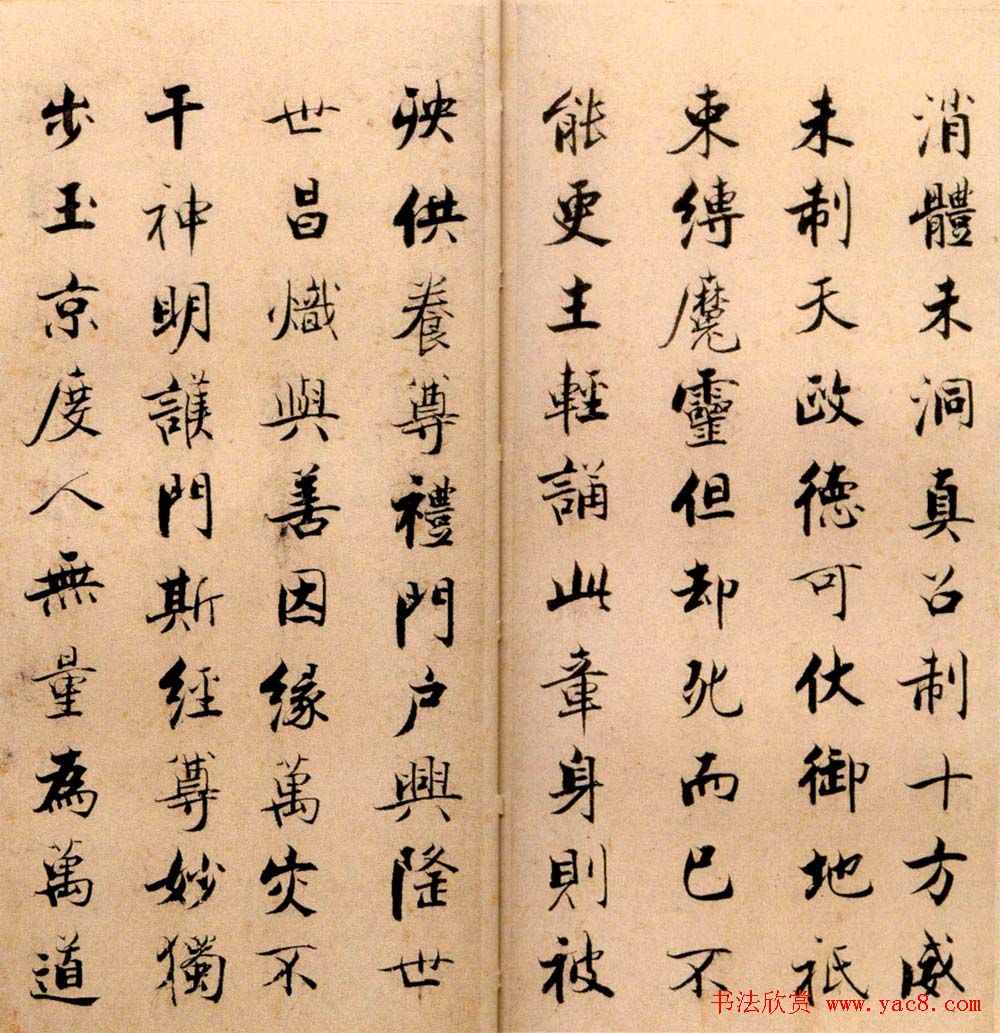 消體未洞真召制十方威
未制天政德可伏御地祇
束縛魔靈但却死而已不
能更生輕誦此章身則被
殃供養尊禮門户興隆世
世昌熾與善因緣萬灾不
干神明護門斯經尊妙獨
步玉京度人無量為萬道
书法欣赏 www.yac8.com